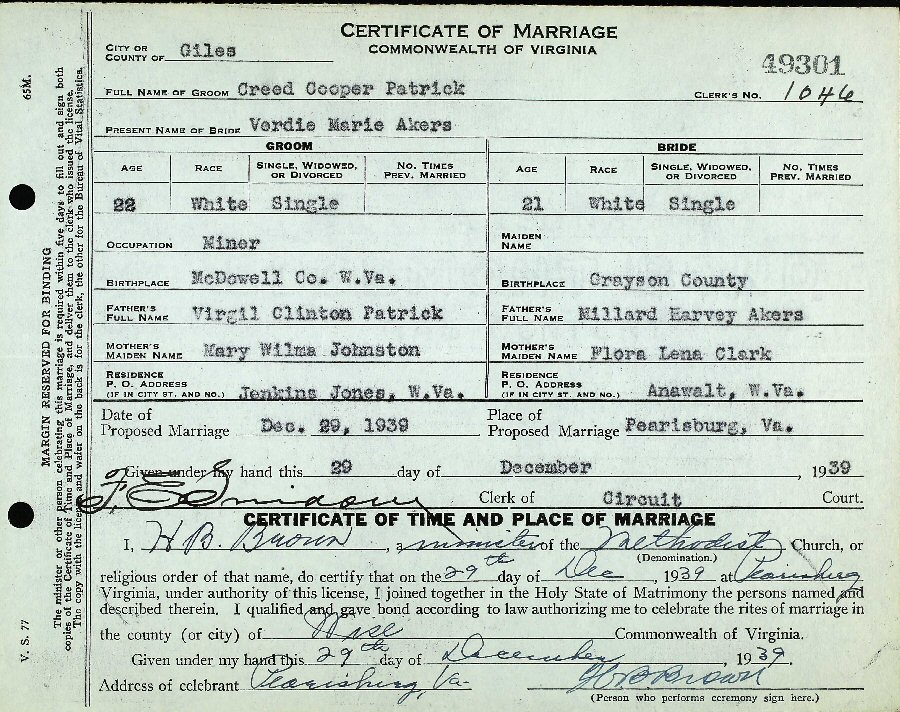 CERTIFICATE OF MARRIAGE
COMMONWEALTH OF VIRGINIA
CITY OR
COUNTY OF Giles
49301
FULL NAME OF GROOM Creed Cooper Patrick
CLERK'S NO. 1046
PRESENT NAME OF BRIDE Verdie Marie Akers
GROOM BRIDE
AGE RACE SINGLE, WIDOWED, OR DIVORCED NO. TIMES PREV. MARRIED AGE RACE SINGLE, WIDOWED, OR DIVORCED NO. TIMES PREV. MARRIED
22 White Single 21 White Single
OCCUPATION Miner MAIDEN NAME
BIRTHPLACE McDowell Co. W.Va. BIRTHPLACE Grayson County
FATHER'S FULL NAME Virgil Clinton Patrick FATHER'S FULL NAME Millard Harvey Akers
MOTHER'S MAIDEN NAME Mary Wilma Johnston MOTHER'S MAIDEN NAME Flora Lena Clark
RESIDENCE P. O. ADDRESS (IF IN CITY ST. AND NO.) Jenkins Jones, W.Va. RESIDENCE P. O. ADDRESS (IF IN CITY ST. AND NO.) Anawalt, W.Va.
Date of Proposed Marriage Dec. 29, 1939 Place of Proposed Marriage Pearisburg, Va.
Given under my hand this 29 day of December, 1939
F. E. Snidow Clerk of Circuit Court.
CERTIFICATE OF TIME AND PLACE OF MARRIAGE
I, H B. Brown, a minister of the Methodist Church, or
(Denomination.)
religious order of that name, do certify that on the 29th day of Dec, 1939 at Pearisburg
Virginia, under authority of this license, I joined together in the Holy State of Matrimony the persons named and
described therein. I qualified and gave bond according to law authorizing me to celebrate the rites of marriage in
the county (or city) of Wise Commonwealth of Virginia.
Given under my hand this 29th day of December, 1939.
Address of celebrant Pearisburg, Va. H B Brown
(Person who performs ceremony sign here.)
65M.
MARGIN RESERVED FOR BINDING
The minister or other person celebrating this marriage is required within five days to fill out and sign both
copies of the Certificate of Time and Place of Marriage, and deliver them to the clerk who issued the license.
The copy with the license and waiver on the back is for the clerk, the other for the Bureau of Vital Statistics.
V. S. 77